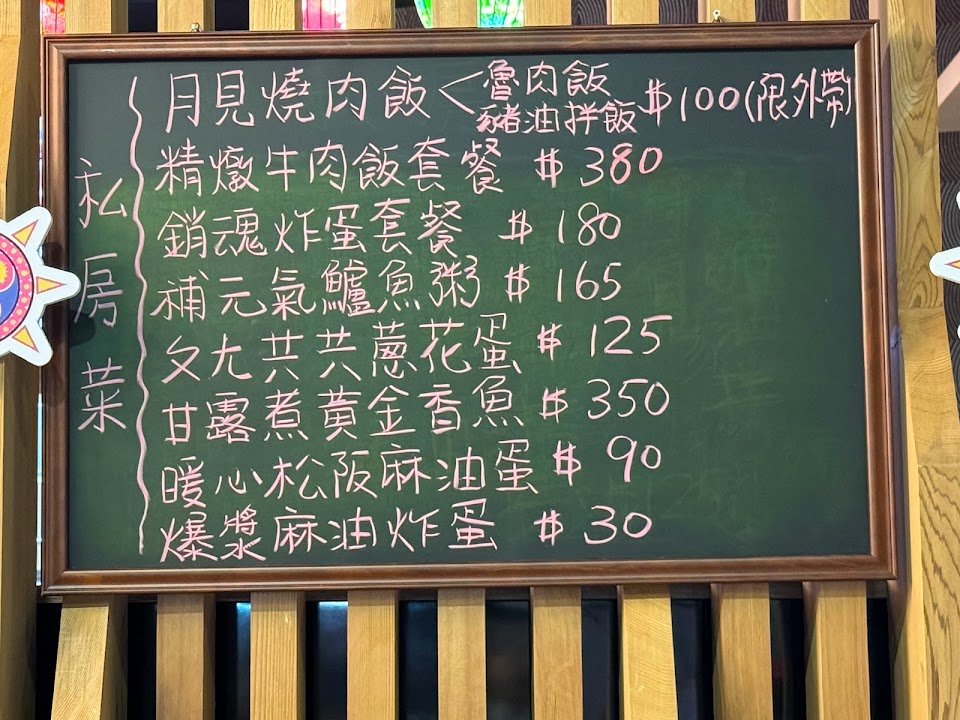 私房菜
月見燒肉飯<魯肉飯 豬油拌飯 $100(限外帶)
精燉牛肉飯套餐 $380
銷魂炸蛋套餐 $180
補元氣鱸魚粥 $165
ㄆㄤ共共蔥花蛋 $125
甘露煮黃金香魚 $350
暖心松阪麻油蛋 $90
爆漿麻油炸蛋 $30